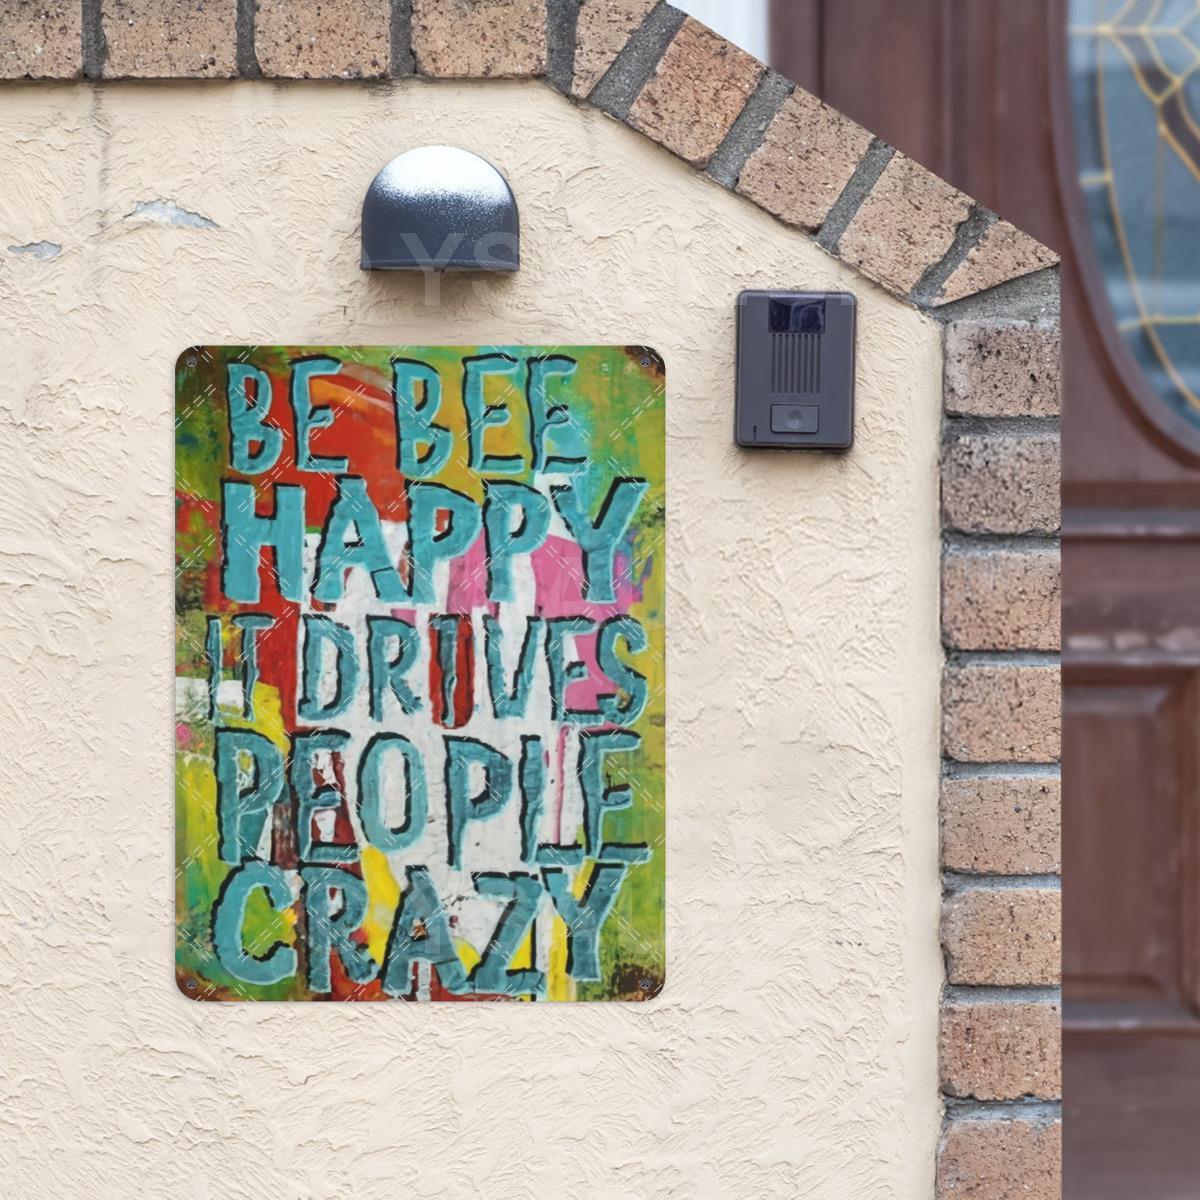 BE BEE
HAPPY
IT DRIVES
PEOPLE
CRAZY